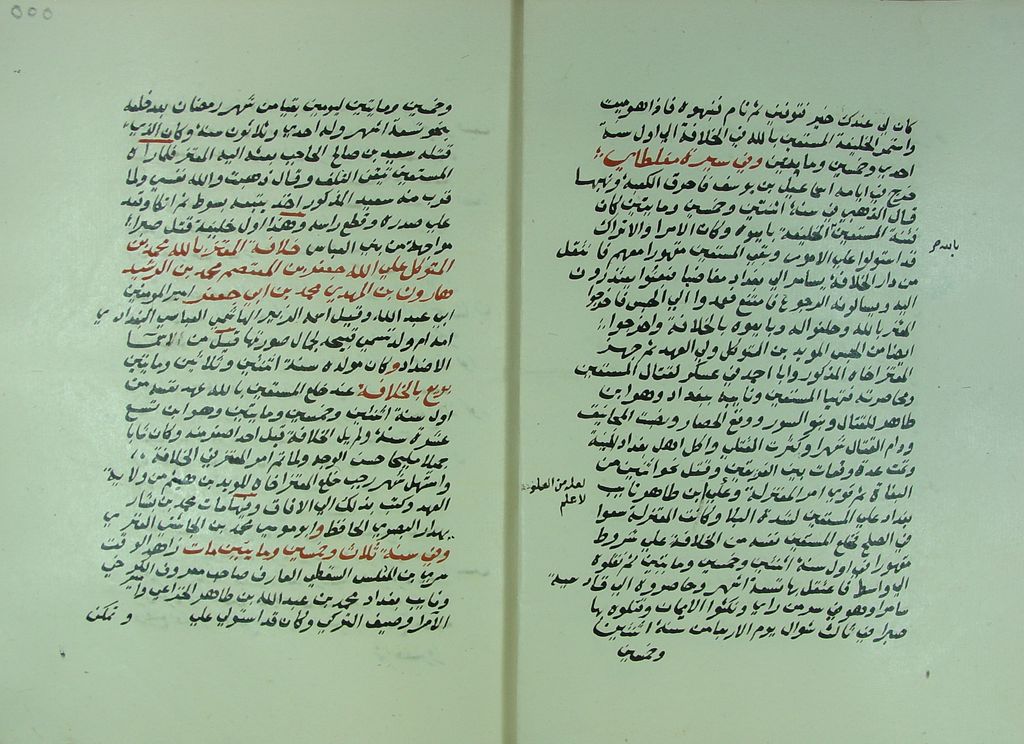 كان لي عندك خير فتوفني ثم نام فنبهوه فاذا هو ميت
واستمر الخليفة المستعين بالله في الخلافة الي اول سنة
احدي وخمسين ومايتين وفي سيرة مغلطاي
خرج في ايامه اسماعيل بن يوسف فاحرق الكعبة ونهبها
قال الذهبي في سنة اثنتين وخمسين ومايتين كان
فتنة المستعين الخليفة بايعوه وكان الامرا والاتراك
قد استولوا علي الامور وعلي المستعين مقهورا معهم فانتقل
من دار الخلافة بسامرا الي بغداد مغاضبا فبعثوا يعتذرون
اليه ويسالونه الرجوع فامتنع فعمدوا الي الحبس فاخرجوا
المعتز بالله وحلفوا له وبايعوه بالخلافة واخرجوا
ايضا من الحبس المويد بن المتوكل ولي العهد ثم جهز
المعتز اخاه المذكور وابا احمد في عسكر لقتال المستعين
ومحاصرته فتهيا المستعين ونايبه ببغداد وهو ابن
طاهر للقتال وبنوا السور ووقع الحصار ونصبت المجانيق
ودام القتال شهرا وكثرت القتلي واكل اهل بغداد الميتة
وتمت عدة وقعات بين الفريقين وقتل نحو الفين من
البغاة ثم قوي امر المعتزلة وتخلي ابن طاهر نايب
بغداد علي المستعين لشدة البلا وكاتب المعتز له سعوا
في الصلح فخلع المستعين نفسه من الخلافة علي شروط
مقهورا في اول سنة اثنتين وخمسين ومايتين ثم نقلوه
الي واسط فاعتقل بها تسعة اشهر وحاصروه الي قادسية
سامرا وهو في سر من راي ونكثوا الايمان وقتلوه بها
صبرا في ثالث شوال يوم الاربعا من سنة اثنتين
وخمسين
بالله صح
لعله من العلوية
لا علم
وخمسين ومايتين ليومين بقيا من شهر رمضان بعد خلعه
بنحو تسعة اشهر وله احدي وثلاثون سنة وكان الذي
قتله سعيد بن صالح الحاجب بعثه اليه المعتز فلما راه
المستعين تيقن التلف وقال ذهبت والله نفسي ولما
قرب منه سعيد المذكور اخذ يقنعه بسوط ثم اتكا وقعد
علي صدره وقطع راسه وهذا اول خليفة قتل صبرا
مواجهة من بني العباس خلافة المعتز بالله محمد بن
المتوكل علي الله جعفر بن المعتصم محمد بن الرشيد
هارون بن المهدي محمد بن ابي جعفر امير المومنين
ابي عبد الله وقيل اسمه الزبير الهاشمي العباسي البغدادي
امه ام ولد تسمي قبيحة لجمال صورتها قيل من الاسما
الاضداد وكان مولده سنة اثنتين وثلاثين ومايتين
بويع بالخلافة عند خلع المستعين بالله عهد نفسه من
اول سنة اثنتين وخمسين ومايتين وهو ابن تسع
عشرة سنة ولم يل الخلافة قبل احد اصغر منه وكان شابا
جميلا مليحا حسن الوجه ولما تم امر المعتز في الخلافة
واستهل شهر رجب خلع المعتز اخاه المويد بن هيم من ولاية
العهد وكتب بذلك الي الافاق وفيها مات محمد بن بشار
بندار البصري الحافظ وابو موسي محمد بن المثني العنزي
وفي سنة ثلاث وخمسين ومايتين مات زاهد الوقت
سري بن المغلس السقطي العارف صاحب معروف الكرخي
ونايب بغداد محمد بن عبد الله بن طاهر الخزاعي وامير
الامرا وصيف التركي وكان قد استولي علي
وتمكن